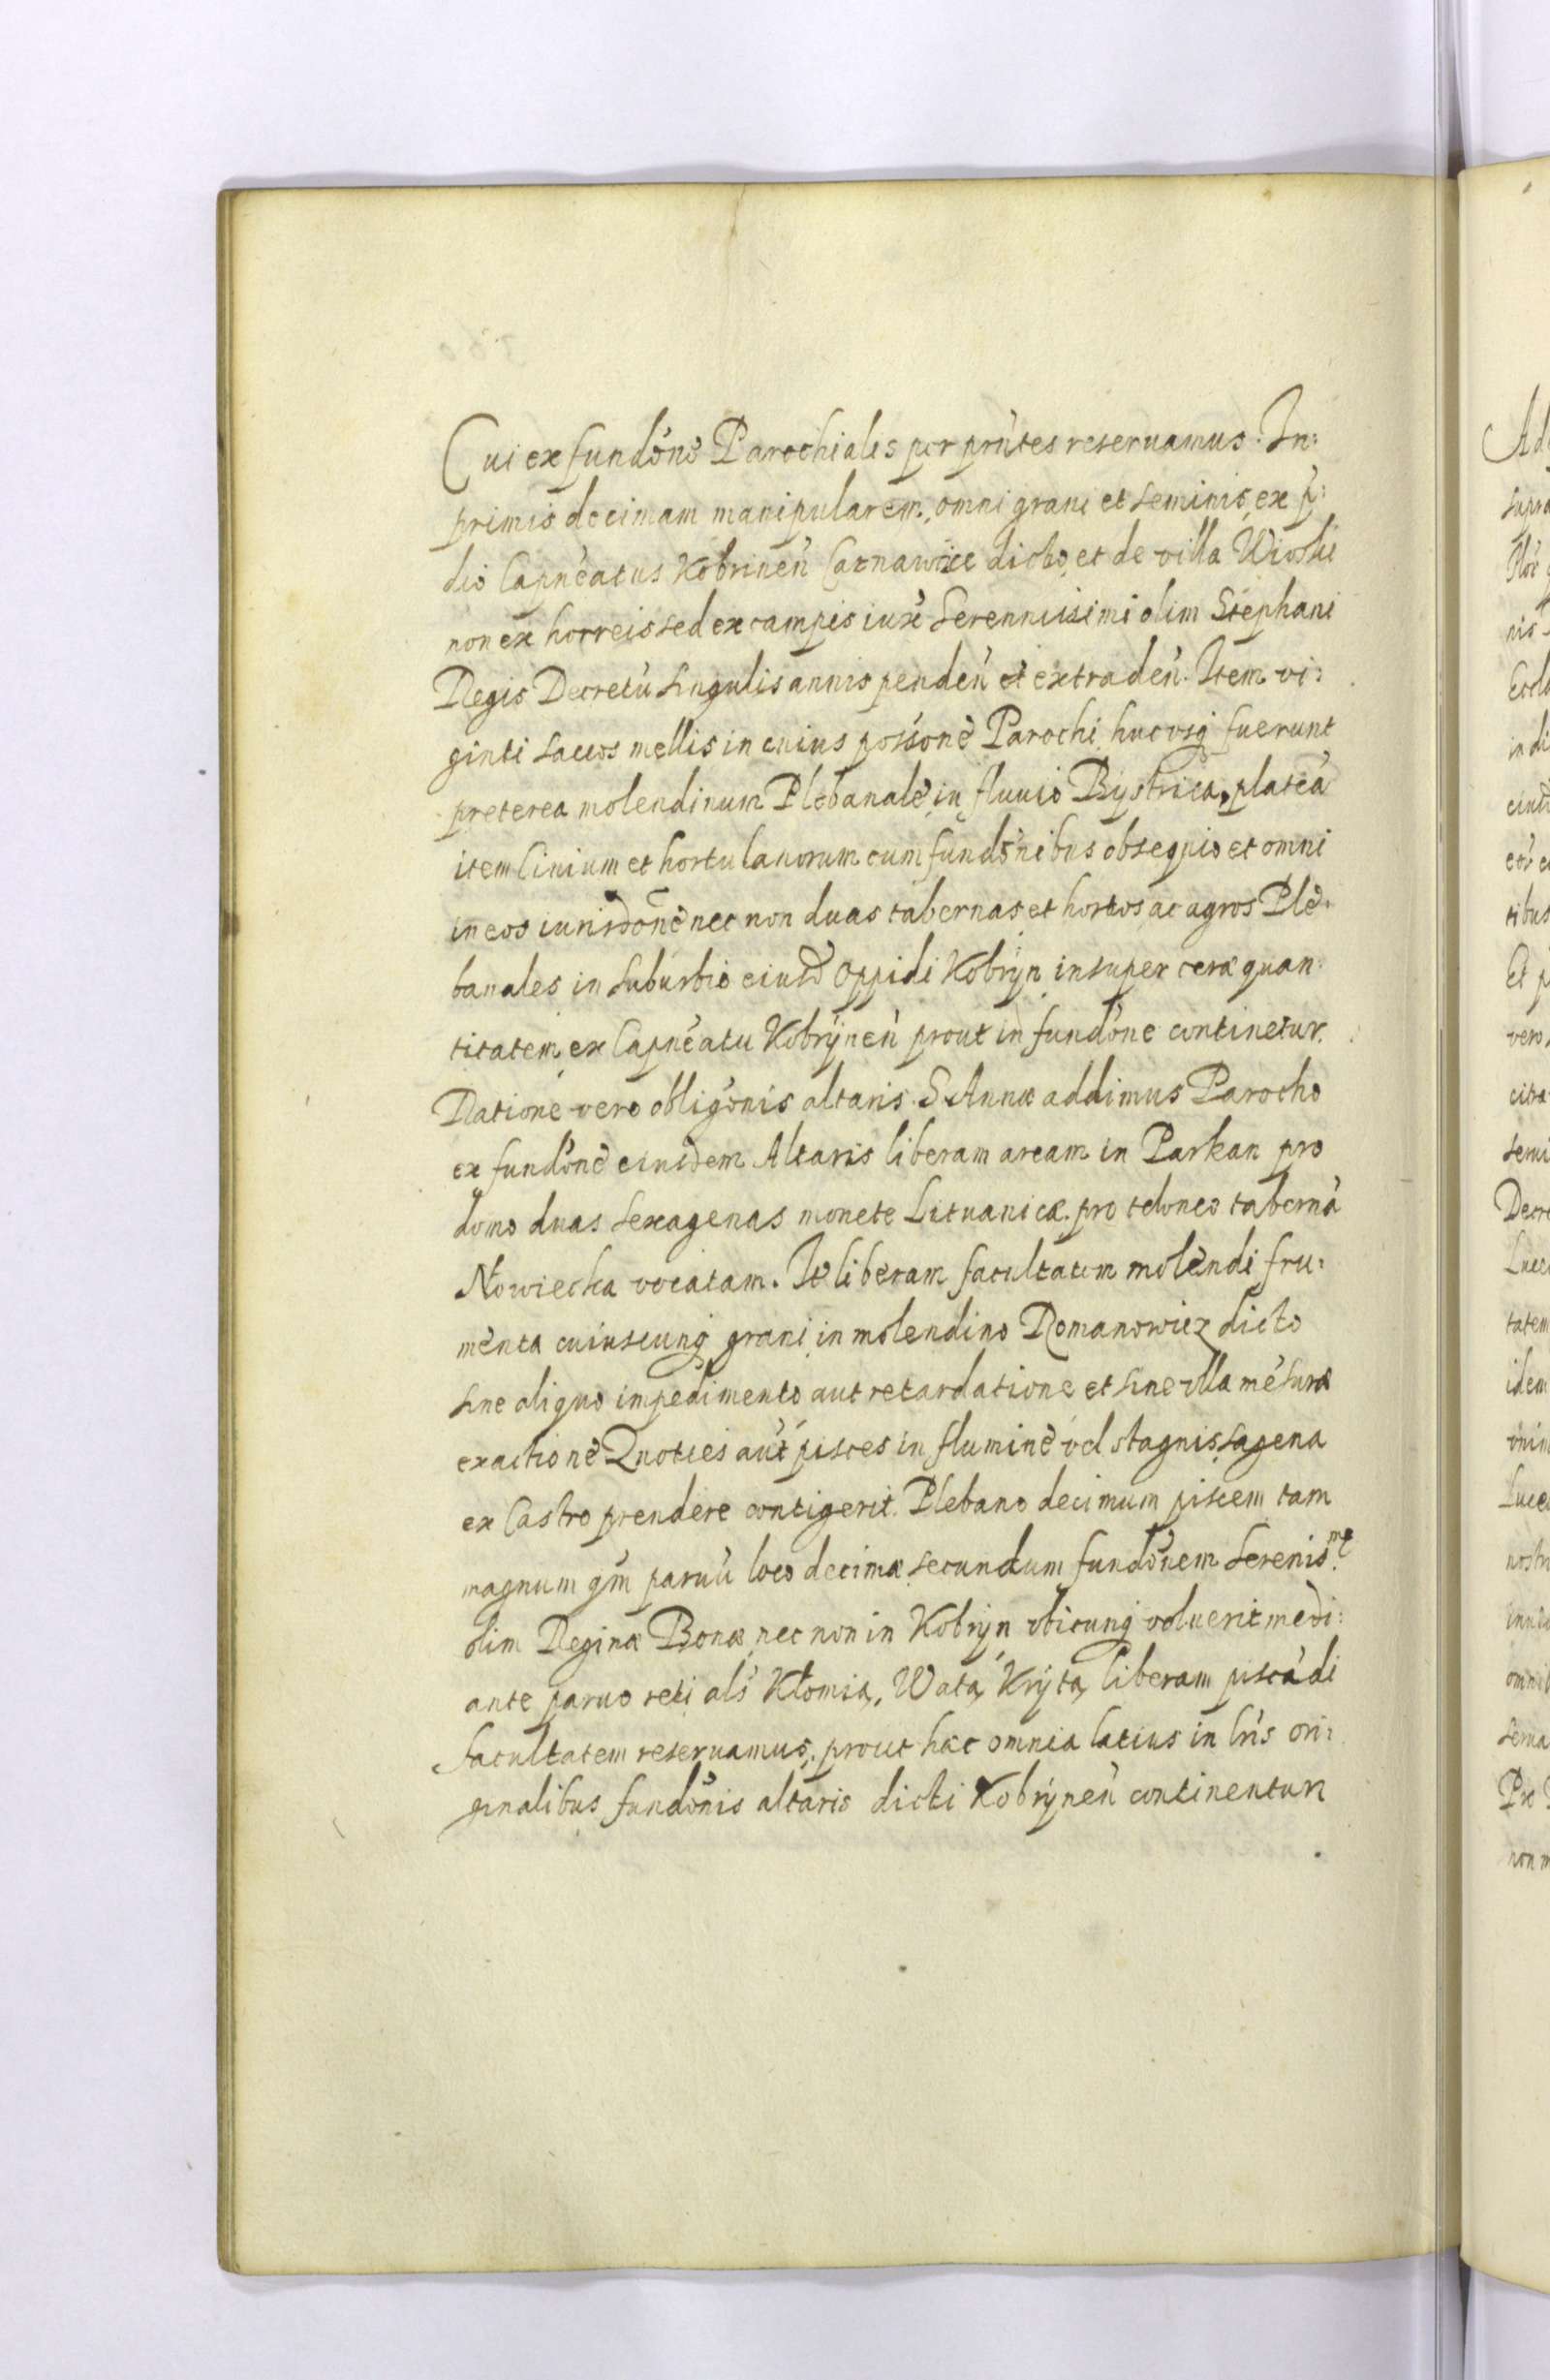 Cui ex fundône Parochialis per prñtes reseruamus. In:
primis decimam manipularem, omni grani et seminis, ex p̱:
dio Capñeatus Kobrineñ Czarnawice dicto, et de villa Wiolki
non ex horreis sed ex campis iux̃ Serennissimi olim Stephani
Regis Decretũ singulis annis pendeñ et extradeñ. Item vi:
ginti sacros mellis in cuius possõne Parochi hucvsq̃ fuerunt
preterea molendinum Plebanale in fluuio Bystrica, plateã
item Ciuium et hortulanorum cum fundõnibus obsequio et omni
in eos iurisdõne nec non duas tabernas, et hortos ac agros Ple:
banales in suburbio eiusd̃ oppidi Kobrÿn insuper ceræ quan:
titatem ex Capñeatu Kobrÿneñ prout in fundõne continetur.
Ratione vero obligõnis altaris S. Annæ addimus Parocho
ex fundõne eiusdem Altaris liberam aream in Parkan pro
domo duas sexagenas monete Lituanicæ pro teloneo tabernã
Nowiecka vocatam. Itẽ liberam facultatem molendi fru:
menta cuiuscunq̃ grani in molendino Romanowicz dicto
sine aliquo impedimento aut retardatione et sine vlla mẽsuræ
exactione Quoties aũt pisces in flumine vel stagnis sagena
ex Castro prendere contigerit. Plebano decimum piscem tam
magnum qm̃ paruũ loco decimæ secundum fundõnem Serenis.mæ
olim Reginæ Bonæ nec non in Kobrÿn vbicunq̃ voluerit medi:
ante paruo reti als̃ Kłomią, Watą, Krÿtą, liberam piscãdi
facultatem reseruamus, prout hæc omnia latius in lrĩs ori:
ginalibus fundõnis altaris dicti Kobrÿneñ continentur